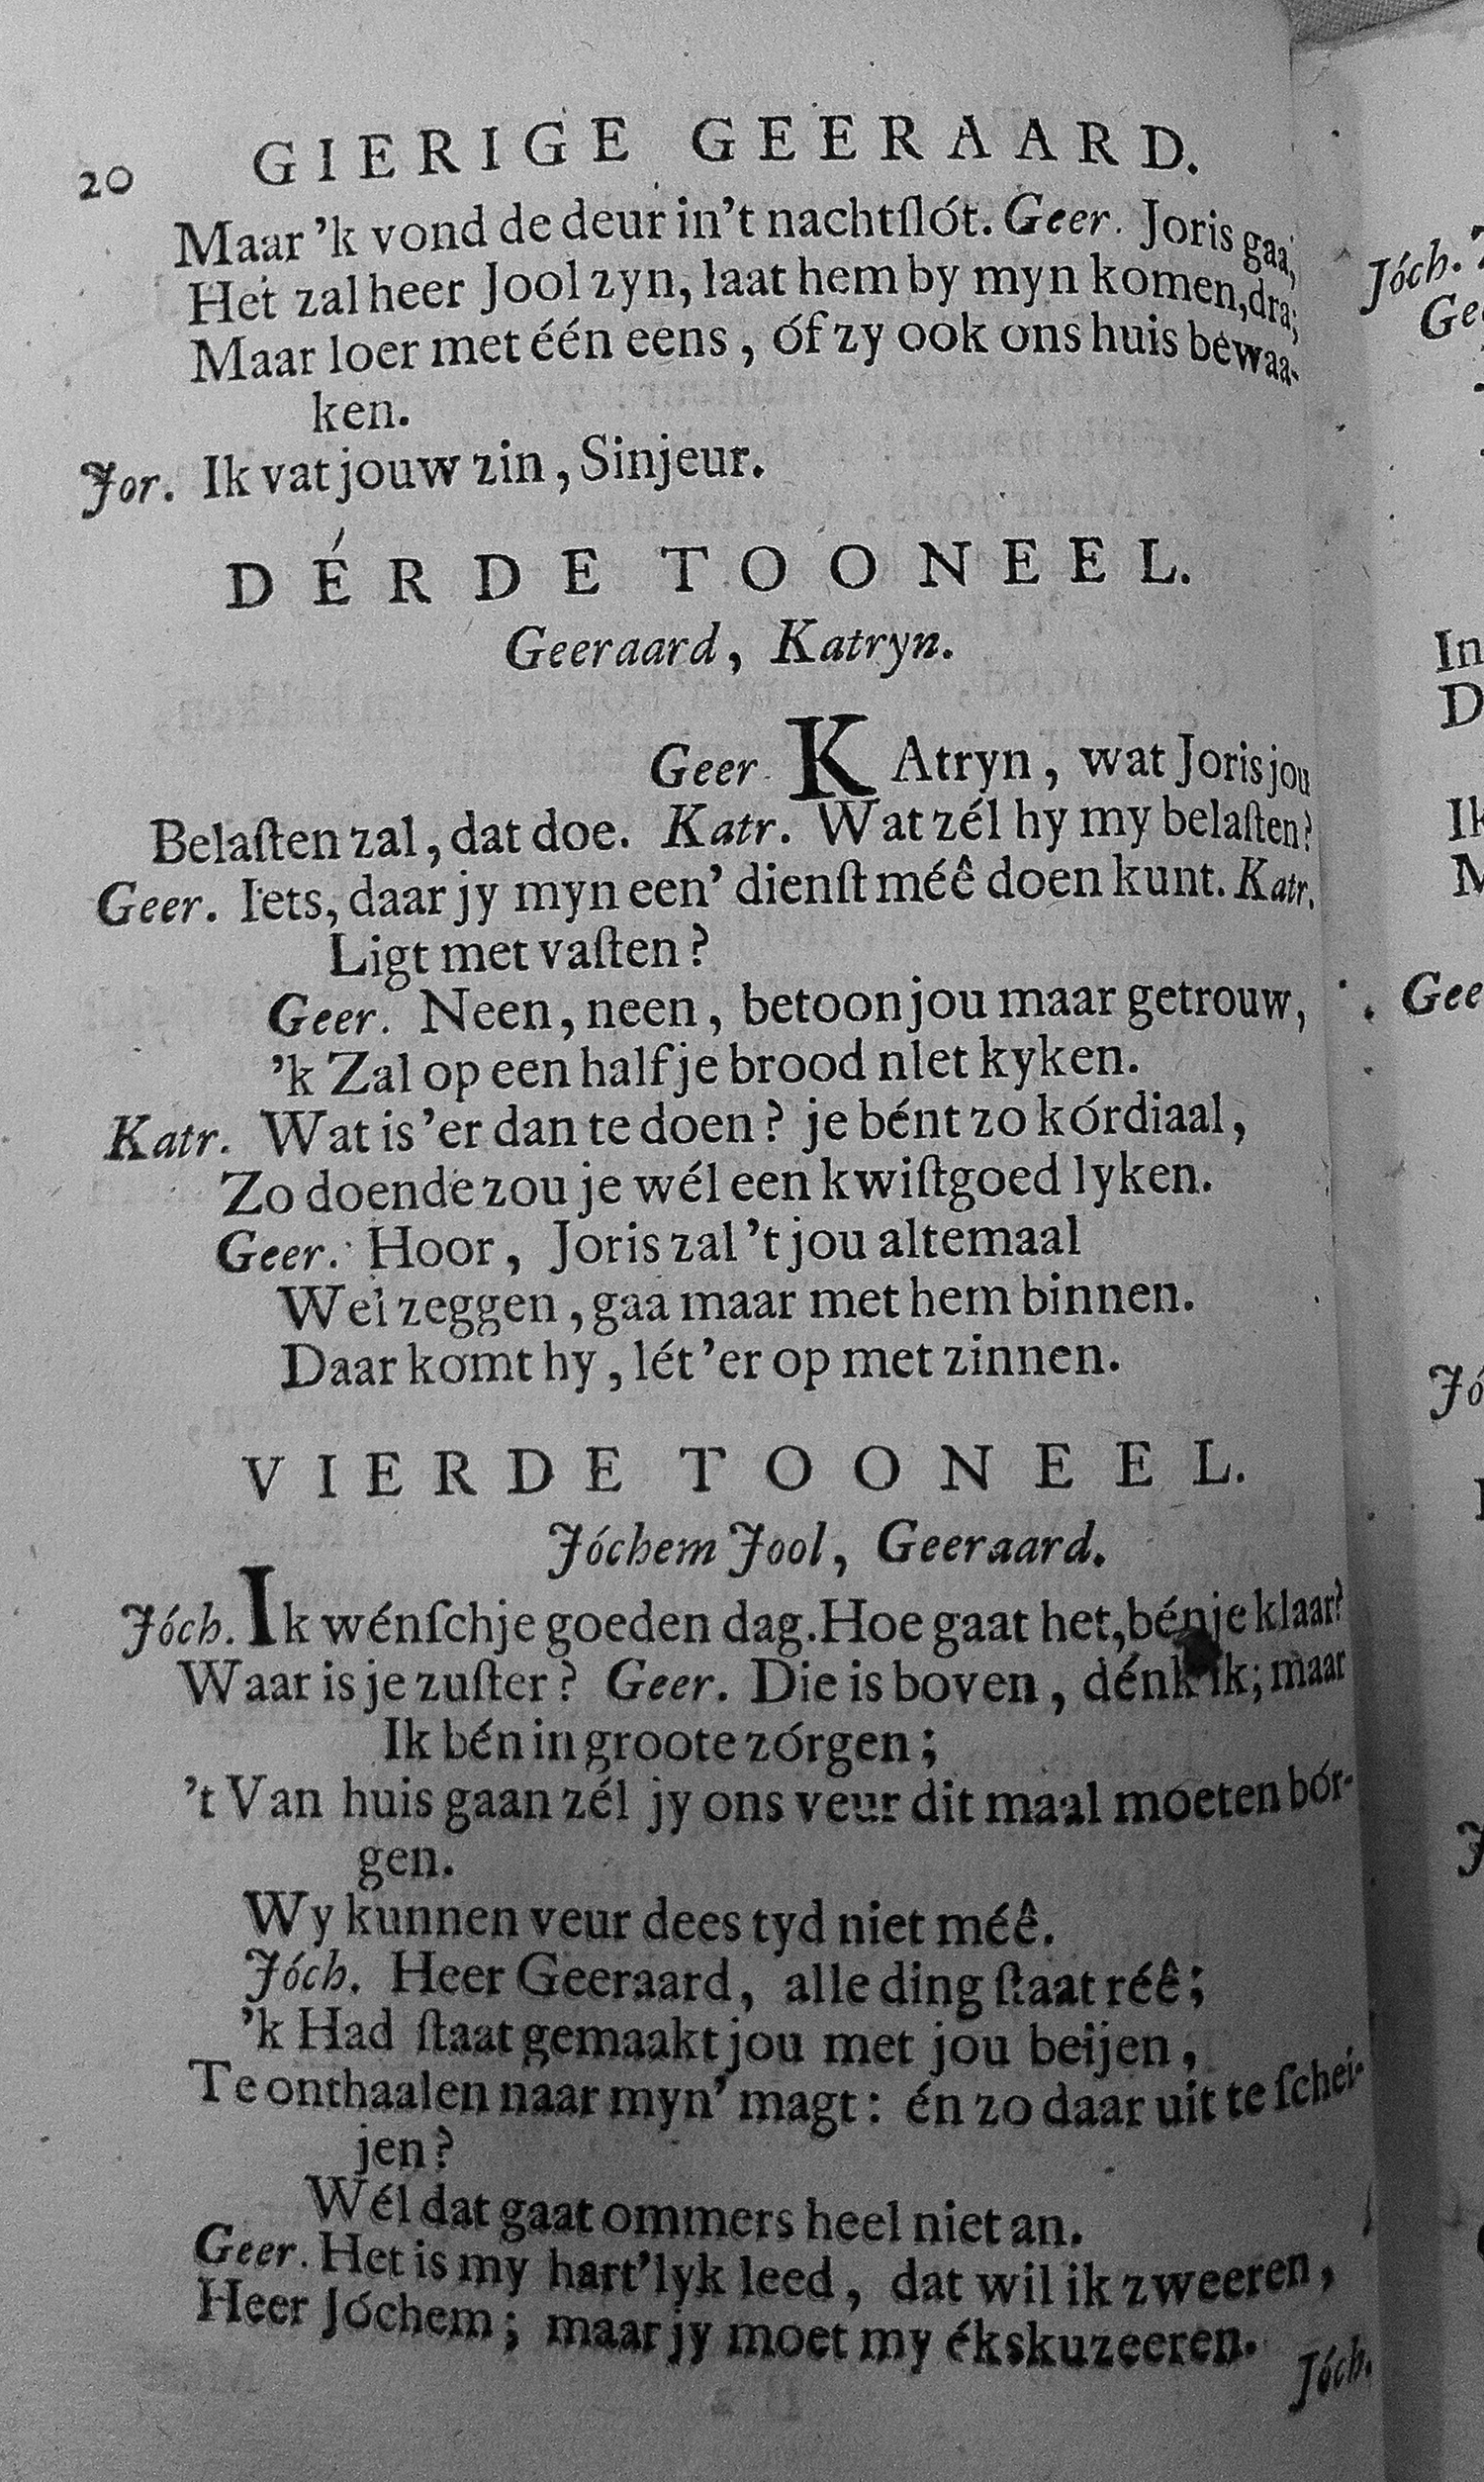 20 GIERIGE GEERAARD.
Maar 'k vond de deur in't nachtſlót. Geer. Joris gaa,
Het zal heer Jool zyn, laat hem by myn komen, dra;
Maar loer met één eens, óf zy ook ons huis bewaa-
ken.
Jor. Ik vat jouw zin, Sinjeur.
DÉRDE TOONEEL.
Geeraard, Katryn.
Geer. KAtryn, wat Joris jou
Belaſten zal, dat doe. Katr. Wat zél hy my belaſten?
Geer. Iets, daar jy myn een' dienſt méê doen kunt. Katr.
Ligt met vaſten?
Geer. Neen, neen, betoon jou maar getrouw,
'k Zal op een half je brood nlet kyken.
Katr. Wat is 'er dan te doen? je bént zo kórdiaal,
Zo doende zou je wél een kwiſtgoed lyken.
Geer. Hoor, Joris zal 't jou altemaal
Wel zeggen, gaa maar met hem binnen.
Daar komt hy, lét 'er op met zinnen.
VIERDE TOONEEL.
Jóchem Jool, Geeraard.
Jóch. Ik wénſchje goeden dag. Hoe gaat het, bénje klaar?
Waar is je zuſter? Geer. Die is boven, dénk ik; maar
Ik bén in groote zórgen;
't Van huis gaan zél jy ons veur dit maal moeten bór-
gen.
Wy kunnen veur dees tyd niet méê.
Jóch. Heer Geeraard, alle ding ſtaat réê;
'k Had ſtaat gemaakt jou met jou beijen,
Te onthaalen naar myn' magt: én zo daar uit te ſchei-
jen?
Wél dat gaat ommers heel niet an.
Geer. Het is my hart'lyk leed, dat wil ik zweeren,
Heer Jóchem; maar jy moet my ékskuzeeren.
Jóch.
Jóch.
In
D
Ik
Gee
Jó